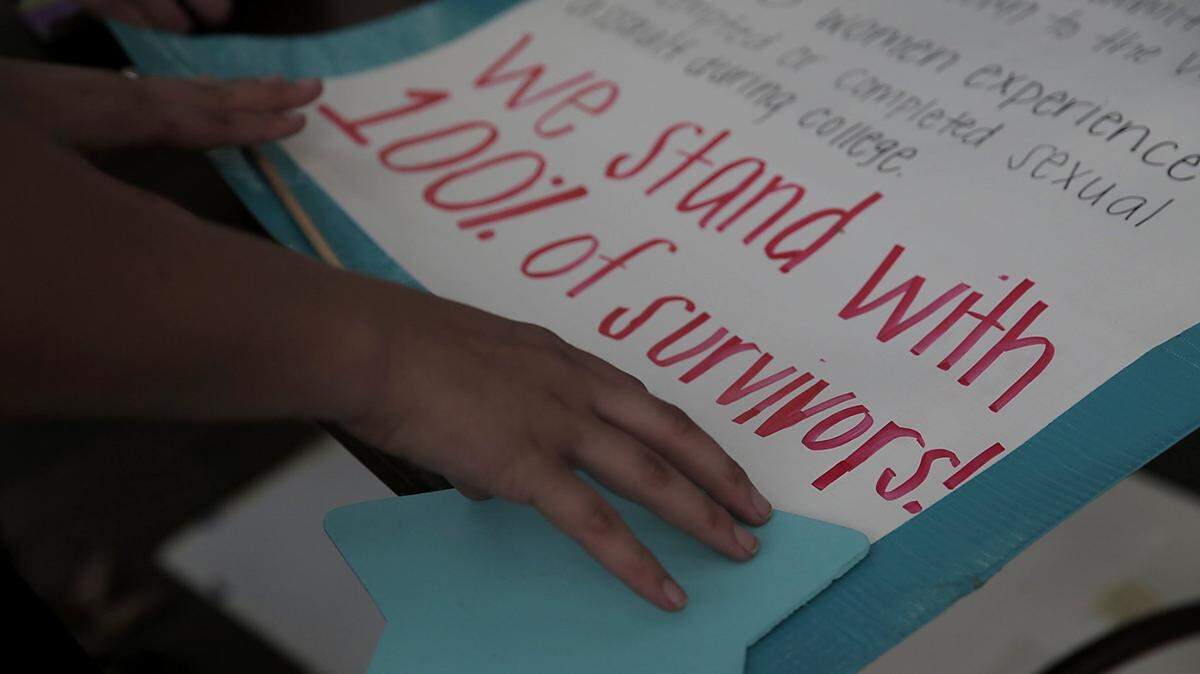 to the
women experience
or completed sexual
assault during college.
We stand with
100% of survivors!